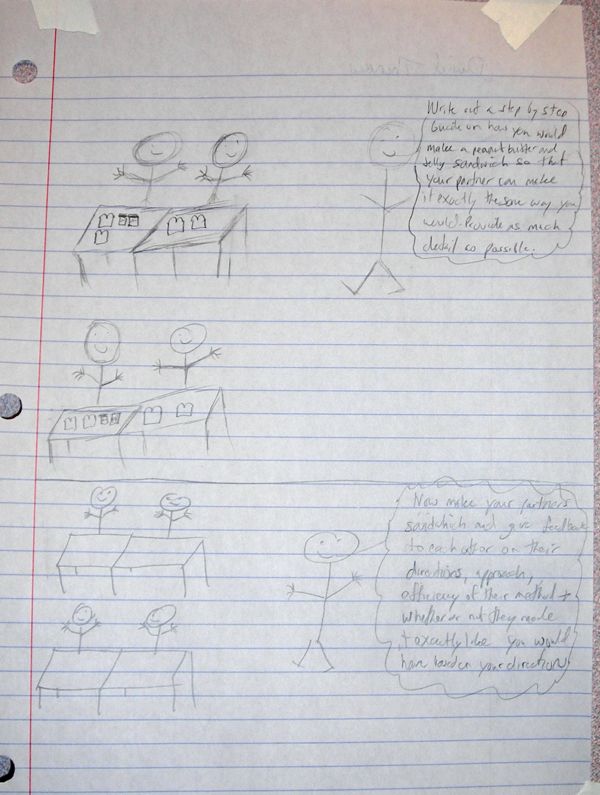 Write out a step by step
Guide on how you would
make a peanut butter and
Jelly sandwich so that
your partner can make
it exactly the same way you
would. Provide as much
detail as possible.
Now make your partners
sandwich and give feedback
to each other on their
directions, approach,
efficiency of their method +
whether or not they made
it exactly like you would
have based on your directions